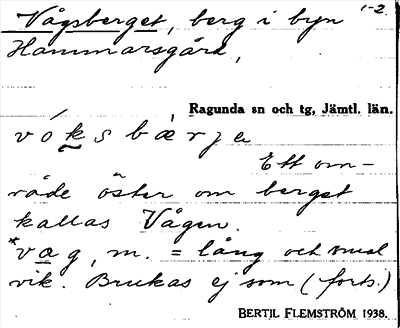 Vågsberget, berg i byn 1-2.
Hammarsgård,
Ragunda sn och tg, Jämtl. län.
vóksbærje
Ett om-
råde öster om berget
kallas Vågen.
*vag, m. = lång och smal
vik. Brukas ej som (forts.)
BERTIL FLEMSTRÖM 1938.